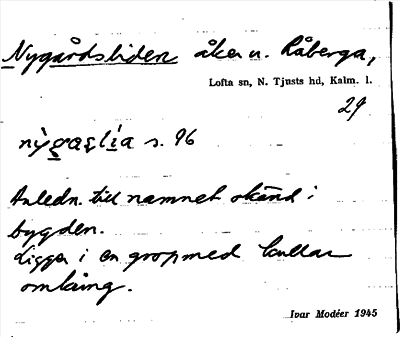 Nygårdsliden åker u. Råberga,
Lofta sn, N. Tjusts hd, Kalm. l.
29
s. 96
Anledn. till namnet okänd i
bygden.
Ligger i en grop med kullar
omkring.
Ivar Modéer 1945